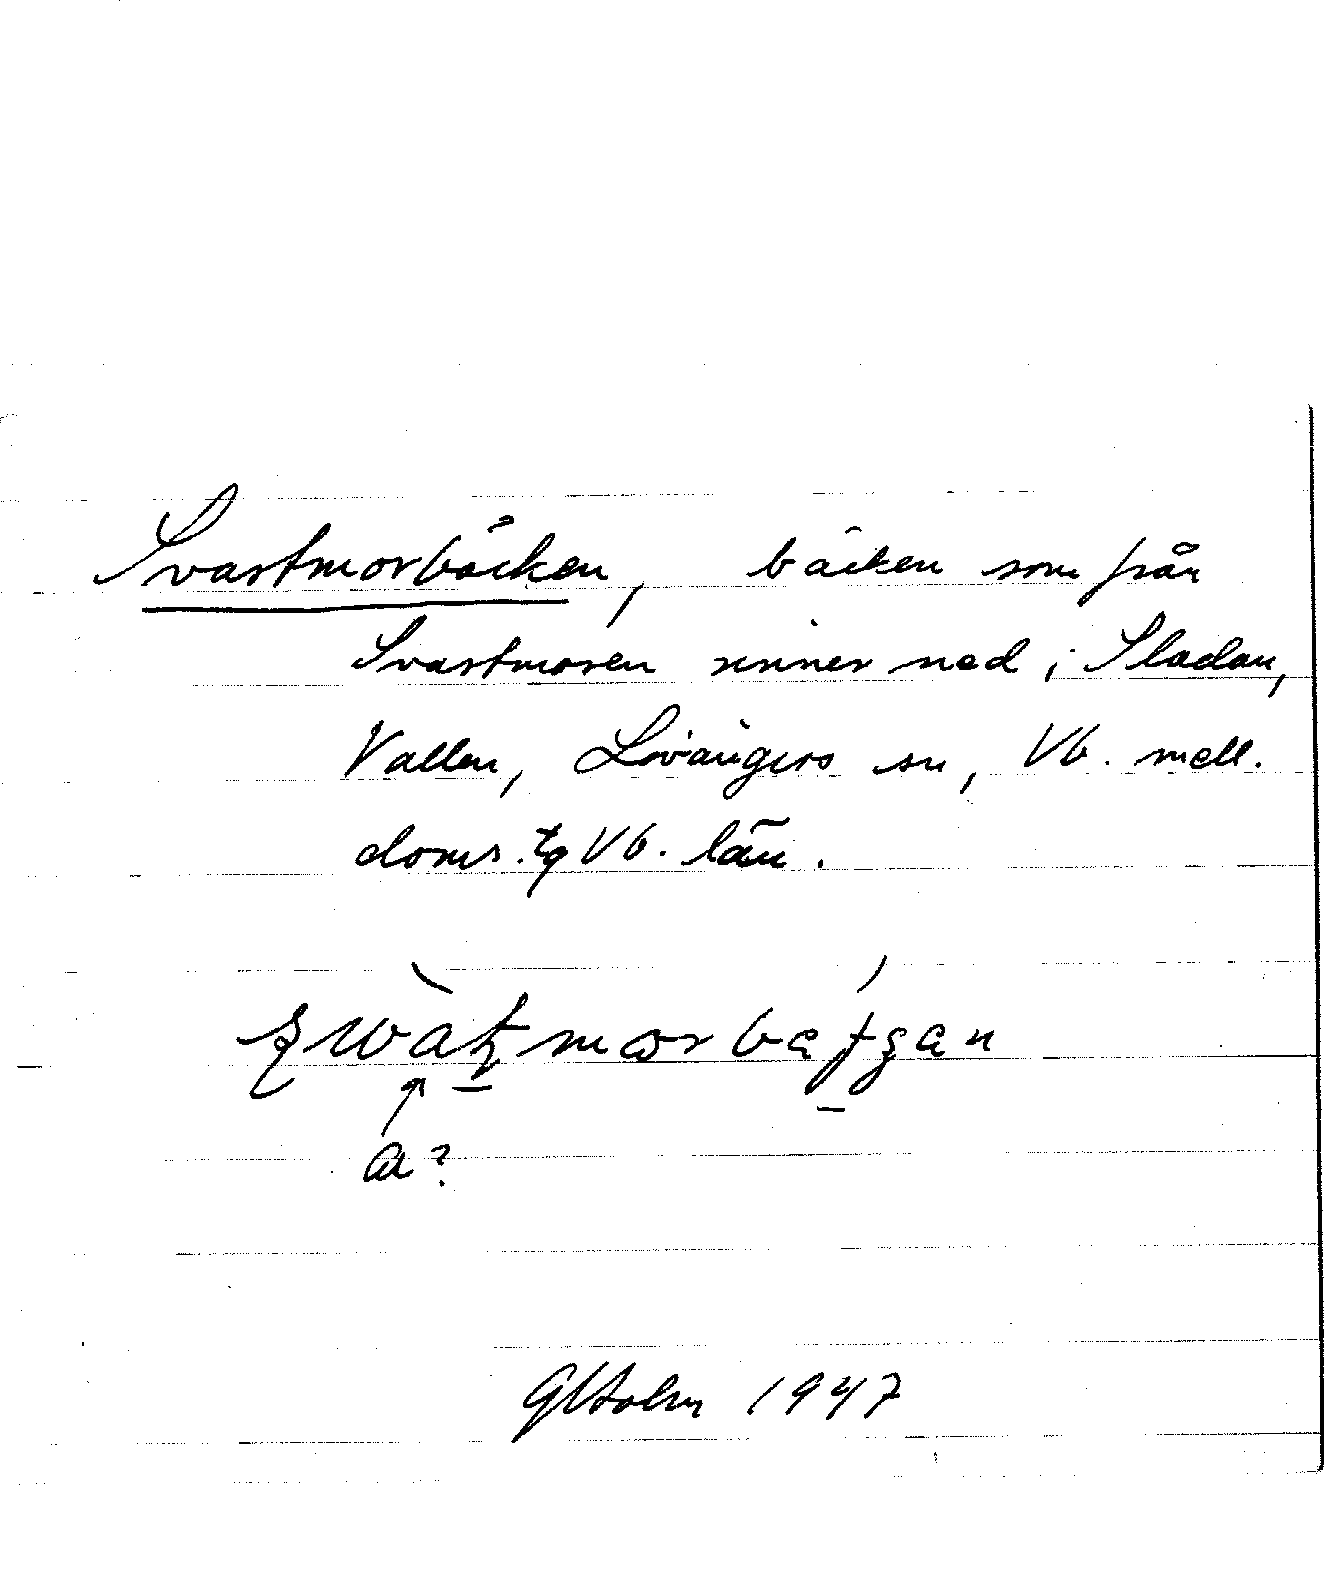 Svartmorbäcken, bäcken som från
Svartmoren rinner ned i Sladan,
Vallen, Lövångers sn, Vb. mell.
doms. tg Vb. län.
a?
GHolm 1947